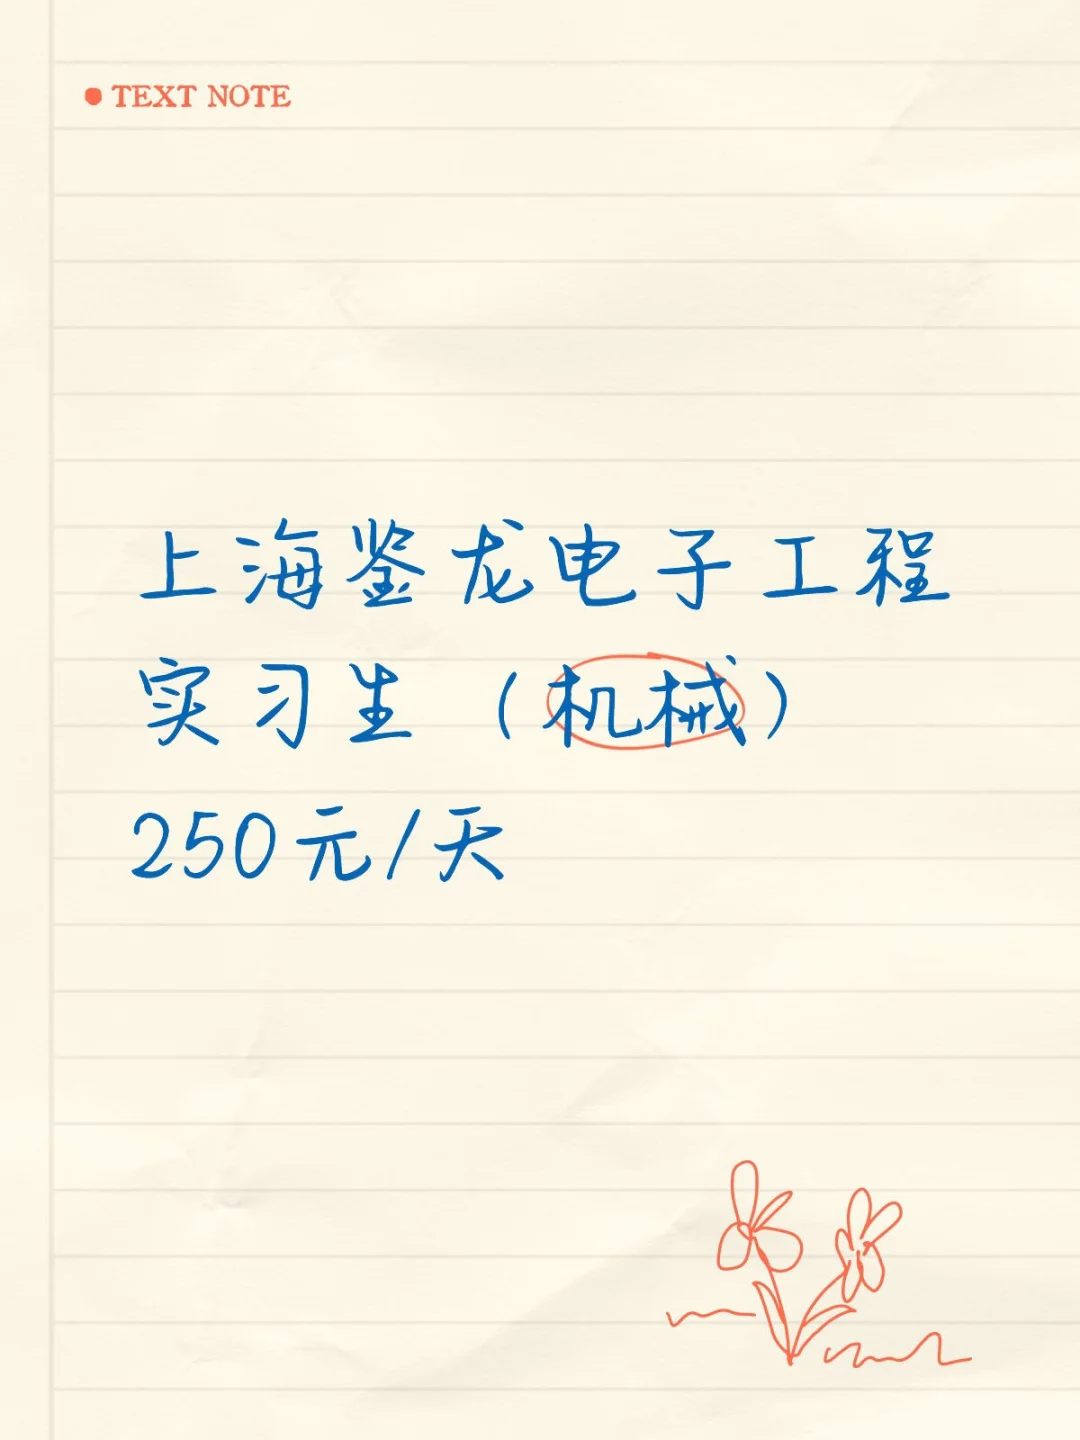 TEXT NOTE
上海鉴龙电子工程
实习生（机械）
250元/天